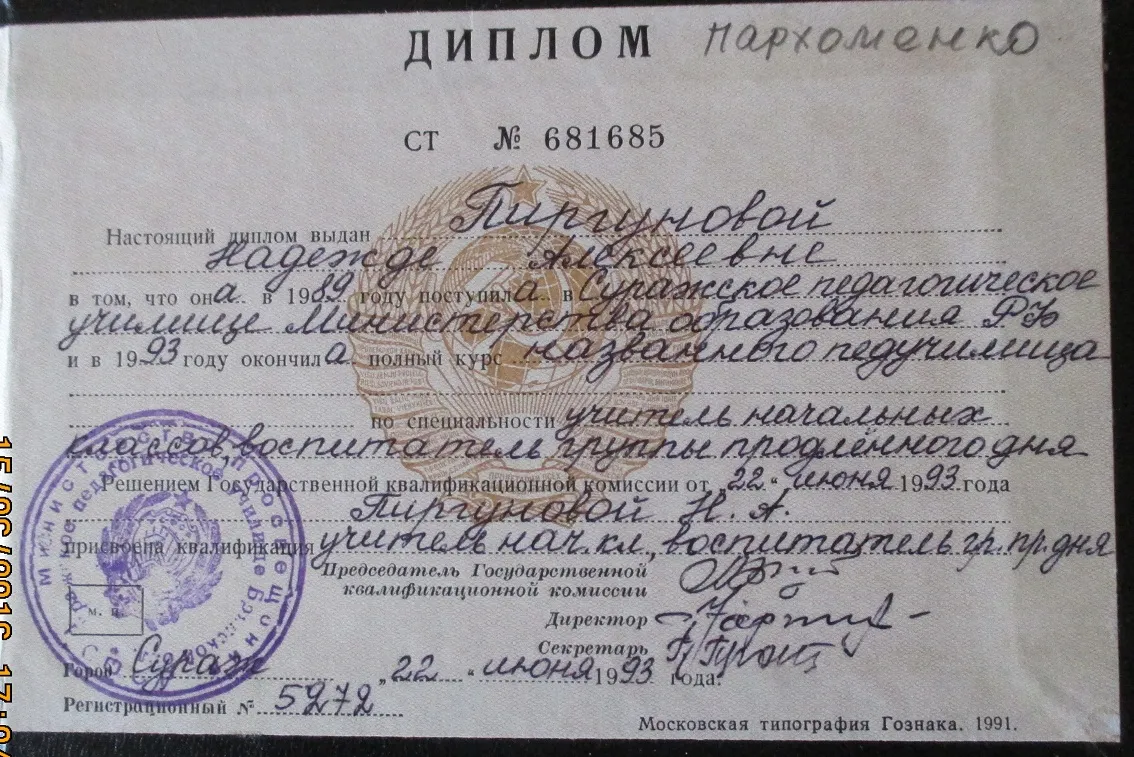 ДИПЛОМ Пархоменко
СТ № 681685
Настоящий диплом выдан Пиргуновой
Надежде Алексеевне
в том, что она в 1989 году поступила в Суражское педагогическое
училище Министерства образования РФ
и в 1993 году окончила полный курс названного педучилища
по специальности учитель начальных
классов, воспитатель группы продлённого дня
Решением Государственной квалификационной комиссии от 22 " июня 1993 года
Пиргуновой Н. А.
присвоена квалификация учитель нач. кл., воспитатель гр. пр. дня
Председатель Государственной
квалификационной комиссии
Директор
Секретарь
м. п.
Город Сураж „ 22 " июня 1993 года.
Регистрационный № 5272
Московская типография Гознака. 1991.
15/06/2016 17: